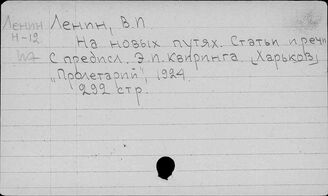 Ленин Ленин, В.П
Н-12
На новых путях. Статьи и речи
С предисл. Э.П. Квиринга. [Харьков]
„Пролетарий", 1924.
292 стр.